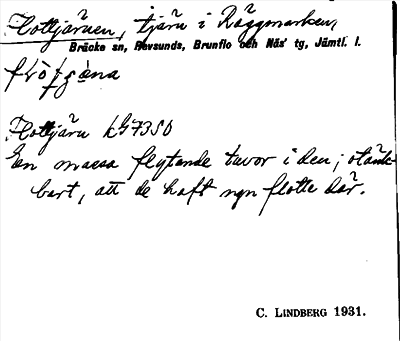 Flottjärnen, tjärn i Räggmarken,
Bräcke sn, Revsunds, Brunflo och Näs' tg, Jämtl. l.
Flottjärn kG7350
En massa flytande tuvor i den; otänk-
bart, att de haft ngn flotte där.
C. LINDBERG 1931.